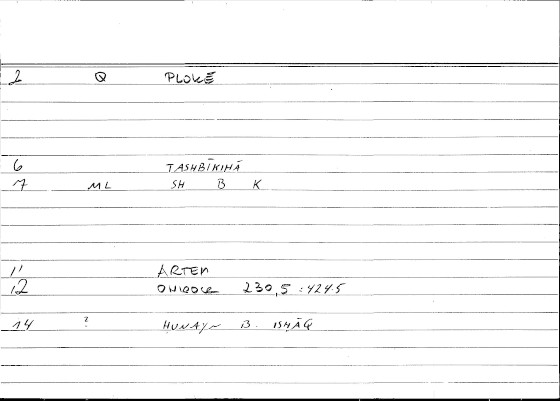 2 Q PLOKĒ
6 TASHBĪKIHĀ
7 ML SH B K
11 ARTEM
12 ONIROCR 230,5 : 424.5
14 ? HUNAYN B. ISHĀQ